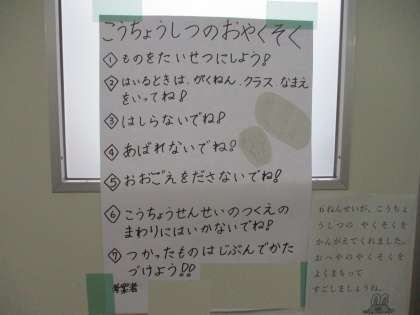 こうちょうしつのおやくそく
① ものをたいせつにしよう!
② はいるときは、がくねん、クラス、なまえ
をいってね!
③ はしらないでね!
④ あばれないでね!
⑤ おおごえをださないでね!
⑥ こうちょうせんせいのつくえの
まわりにはいかないでね!
⑦ つかったものはじぶんでかた
づけよう!!
考案者
6ねんせいが、こうちょ
うしつの やくそくを
かんがえてくれました。
おへやのやくそくを
よくまもって
すごしましょうね。